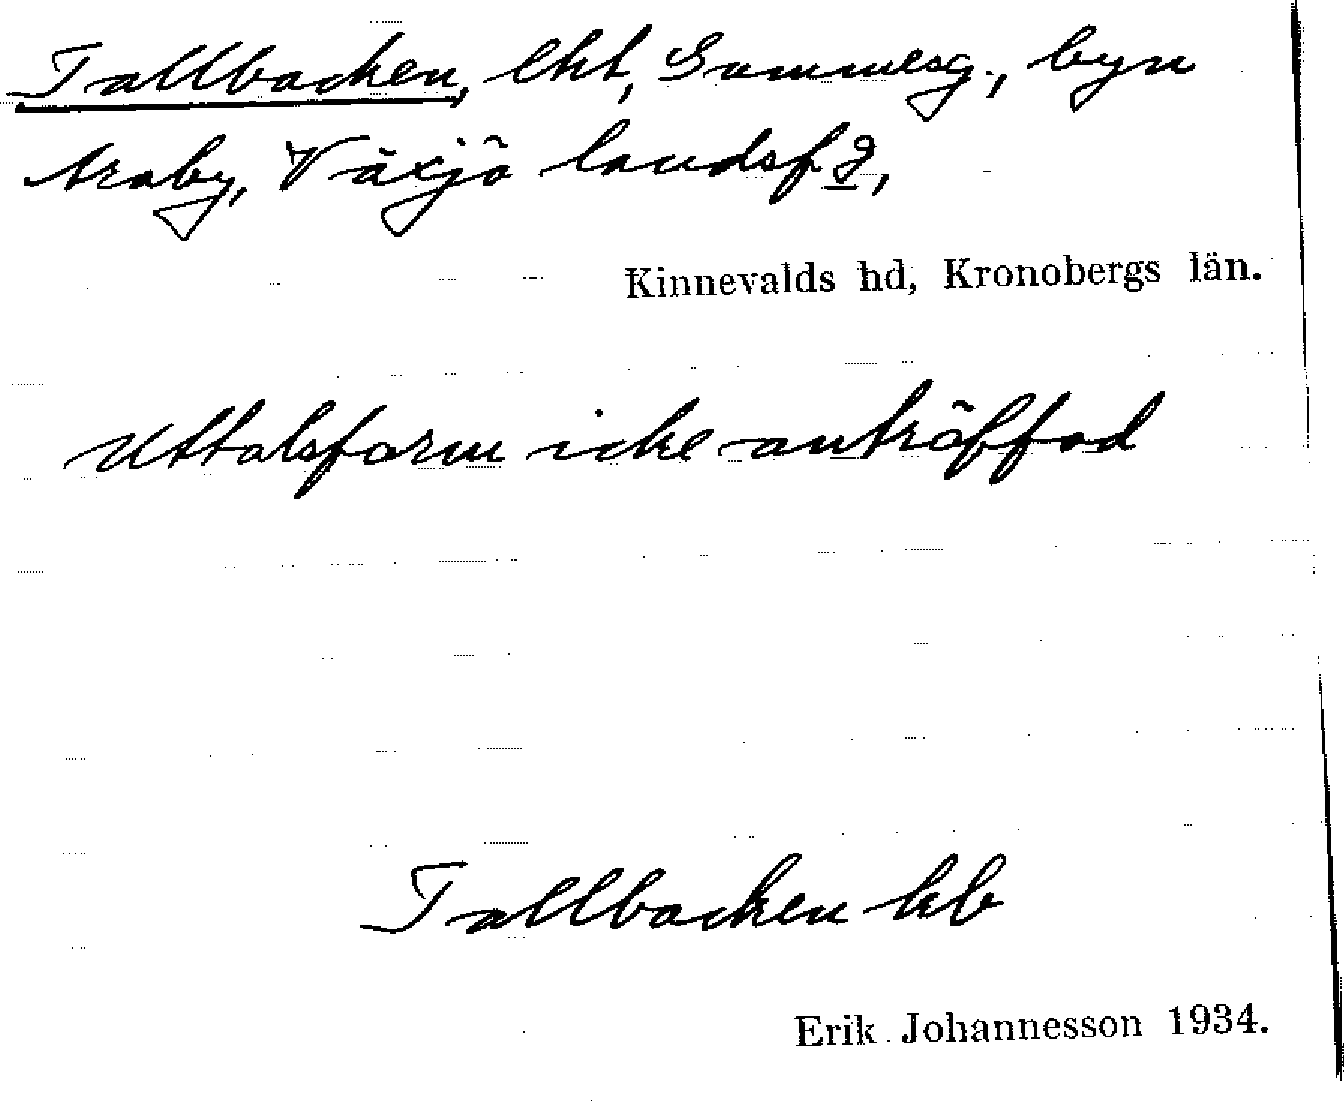 Tallbacken, lht, Sommesg., byn
Araby, Växjö landsf 2,
Kinnevalds hd, Kronobergs län.
Uttalsform icke anträffad
Tallbacken kb
Erik Johannesson 1934.